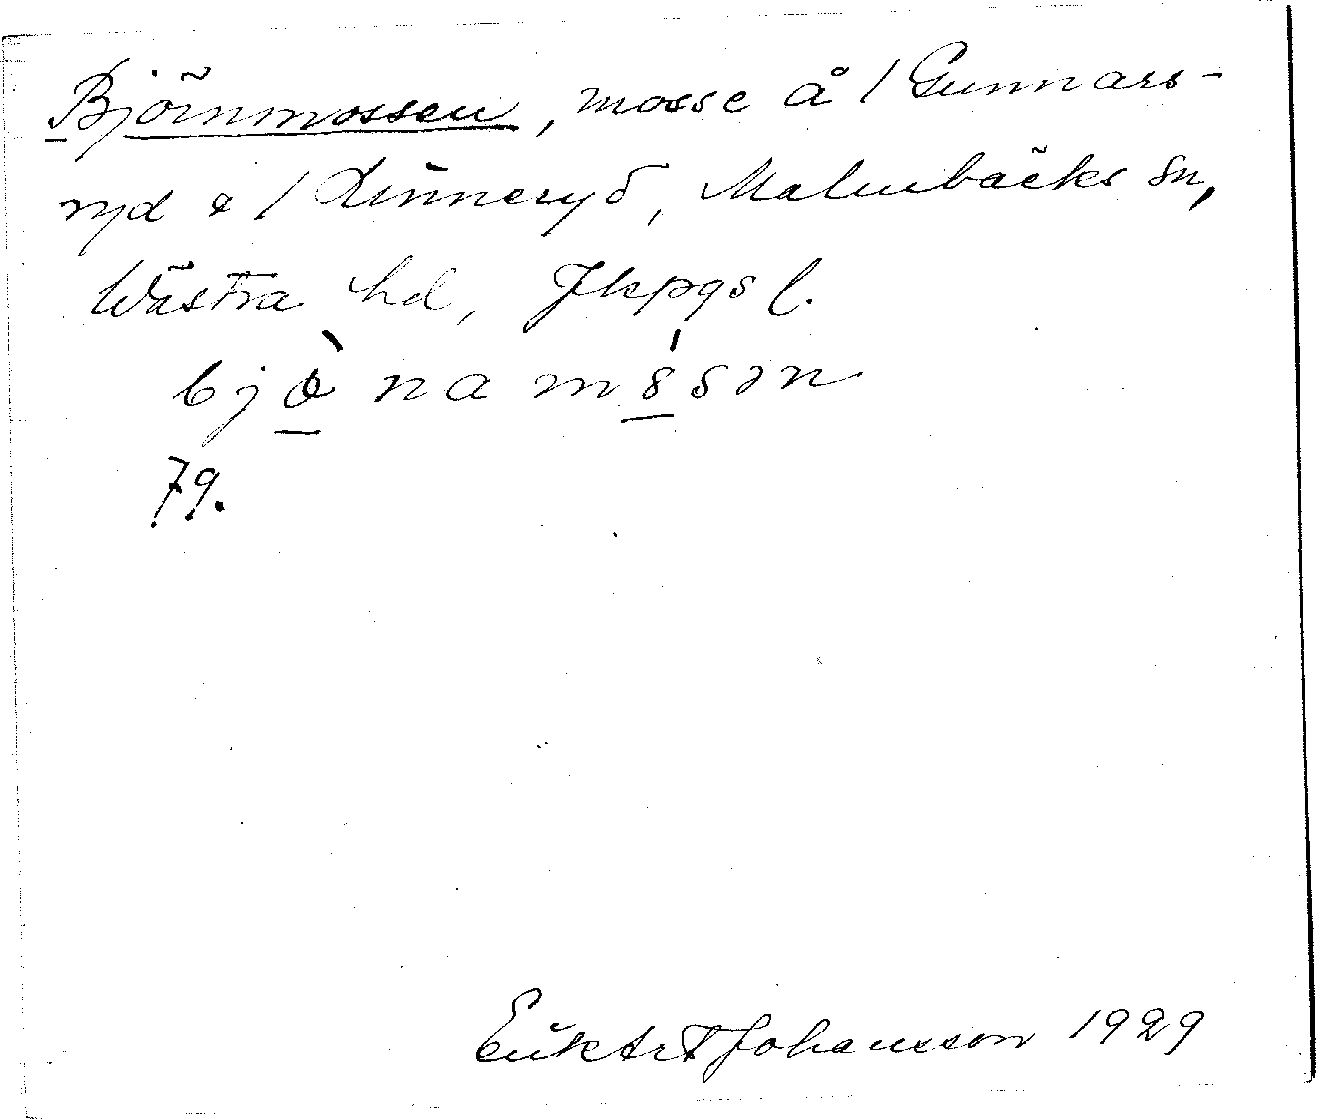 Björnmossen, mosse å / Gunnars-
ryd & / Linneryd, Malmbäcks sn,
Västra hd, Jkpgs l.
bjònamósən
79.
Erik Art Johansson 1929